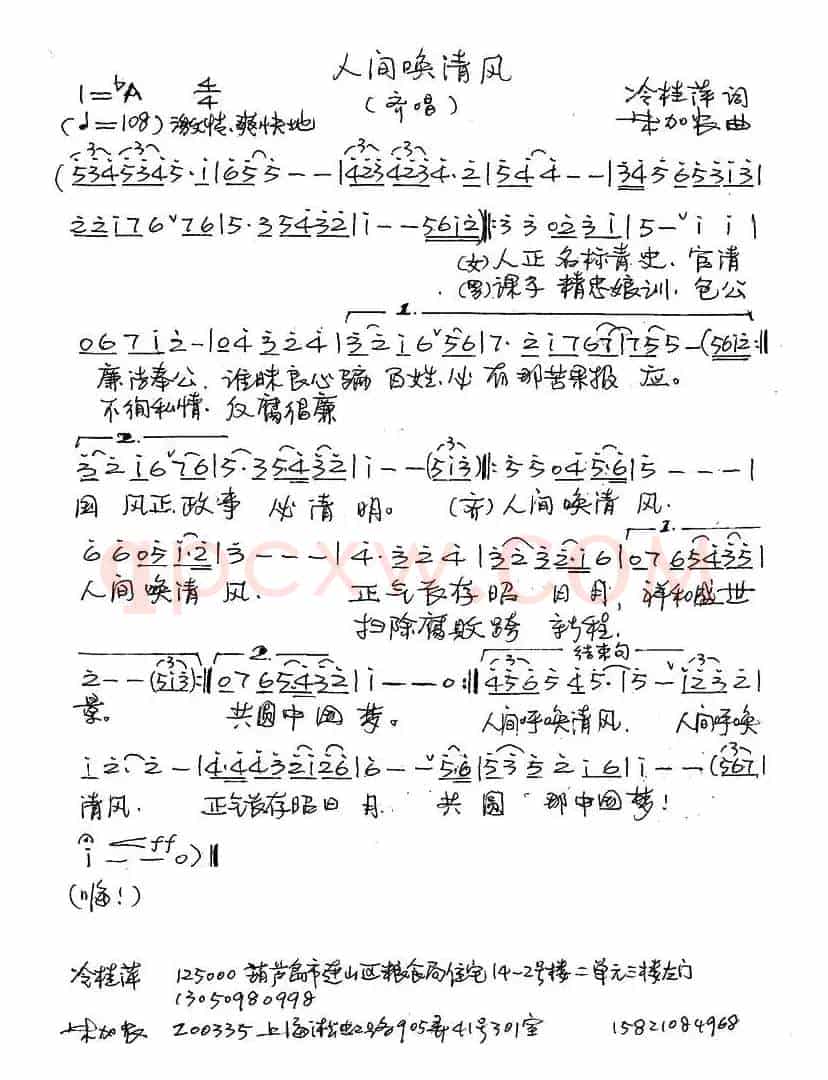 人间唤清风
1=♭A 4/4 (齐唱) 冷桂萍 词
(♩=108) 激情、爽快地 加农 曲
(5345345·i|655--|4234234·2|544--|345653i3|
22i76ˇ76|5·35432|i--56i2)‖:33023i|5-ˇii|
(女)人正 名标青史. 官清
(男)课子 精忠娘训. 包公
1.
067i2-|04324|32i6ˇ56|7·2i767|755-(56i2:‖
廉洁奉公. 谁昧良心骗 百姓.必 有那苦果报 应。
不徇私情. 反腐倡廉
2.
32i6ˇ76|5·35432|i--(5i3)‖:55045·6|5---|
国 风正.政事 必清明。 (齐)人间唤清 风.
6605i·2|3---|4·324|3232·i6|0765435|
1.
人间 唤清 风. 正气长存昭 日月, 祥和盛世
扫除腐败跨 新征程.
2. 结束句
2--(5i3):‖0765·432|i--0:‖456545·|5-ˇi232|
景。 共圆中国梦。 人间呼唤清风. 人间呼唤
i2·2-|4·4432i26|6--ˇ5·6|5352i6|i--(567|
清风. 正气长存昭日 月. 共 圆 那中国梦!
i--0)‖ ff
(嗨!)
冷桂萍 125000 葫芦岛市连山区粮食局住宅14-2号楼二单元三楼左门
13050980998
加农 200335 上海淞虹路905弄41号301室 15821084968
qpcxw.com